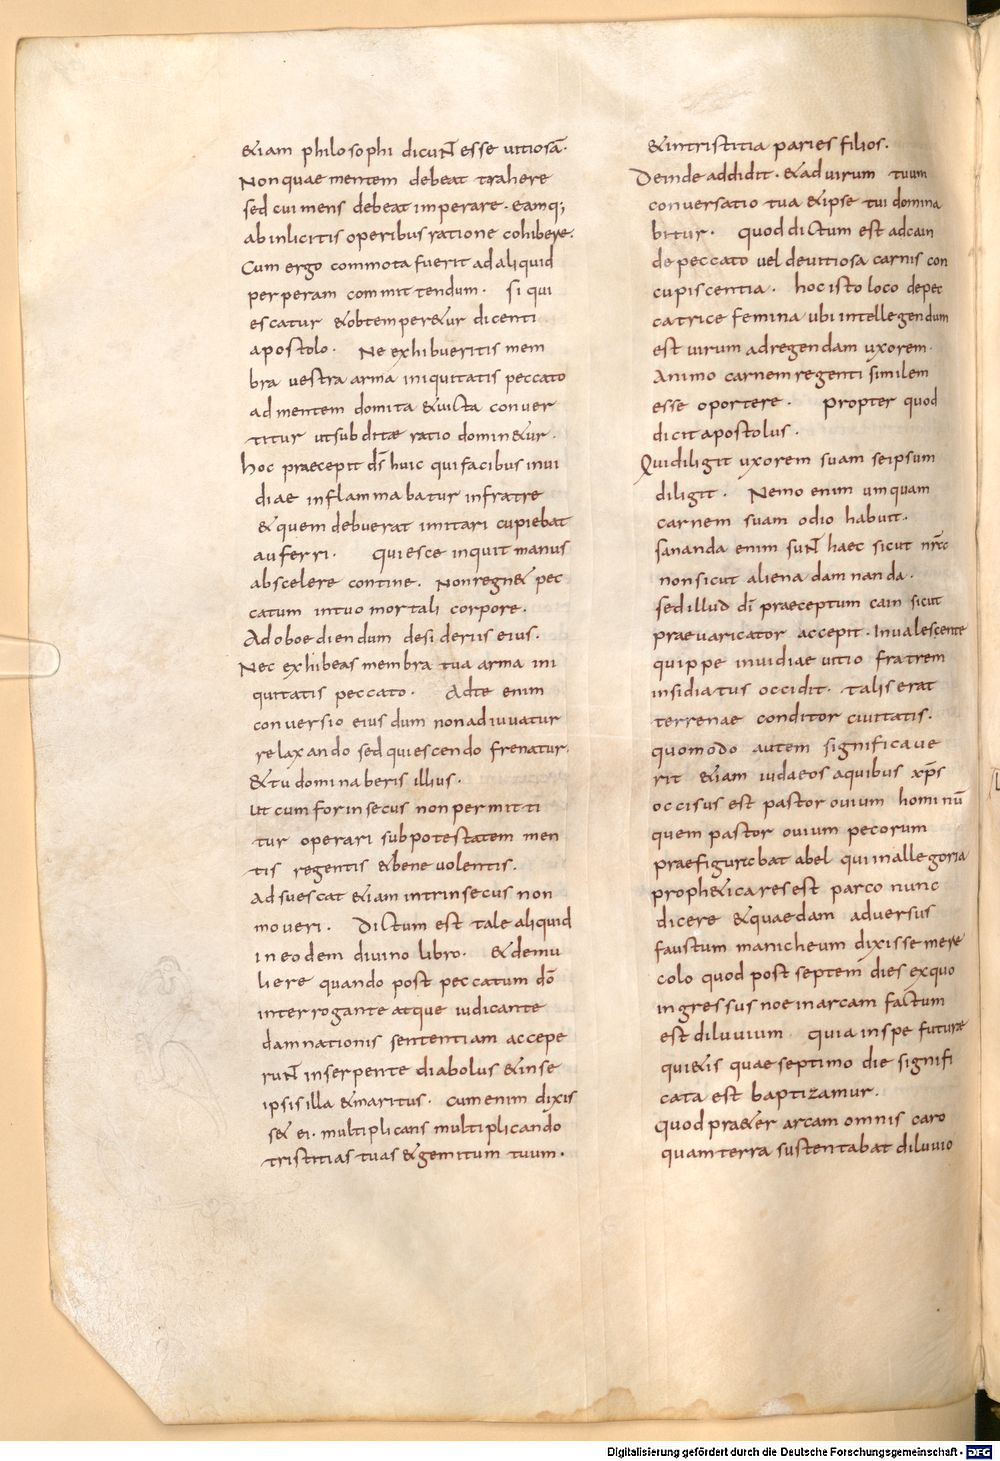 &iam philosophi dicuNt esse uitiosā·
Non quae mentem debeat trahere
sed cui mens debeat imperare· eamq;
ab inlicitis operibus ratione cohibere·
Cum ergo commota fuerit ad aliquid
perperam committendum· si qui
escatur &obtemper&ur dicenti
apostolo· Ne exhibueritis mem
bra uestra arma iniquitatis peccato
ad mentem domita &uicta conuer
titur ut subditae ratio domin&ur·
hoc praecepit ds̄ huic qui facibus inui
diae inflammabatur in fratre
&quem debuerat imitari cupiebat
auferri· quiesce inquit manus
ab scelere contine· Non regn& pec
catum in tuo mortali corpore·
Ad oboediendum desideriis eius·
Nec exhibeas membra tua arma ini
quitatis peccato· Ad te enim
conuersio eius dum non adiuuatur
relaxando sed quiescendo frenatur·
&tu dominaberis illius·
ut cum forinsecus non permitti
tur operari sub potestatem men
tis regentis &beneuolentis·
Adsuescat &iam intrinsecus non
moueri· Dictum est tale aliquid
in eodem diuino libro· &de mu
liere quando post peccatum dō
interrogante atque iudicante
damnationis sententiam accepe
ruNt in serpente diabolus &in se
ipsis illa &maritus· cum enim dixis
s& ei· multiplicans multiplicando
tristitias tuas &gemitum tuum·
&in tristitia paries filios·
Deinde addidit· &ad uirum tuum
conuersatio tua &ipse tui domina
bitur· quod dictum est ad cain
de peccato uel de uitiosa carnis con
cupiscentia· hoc isto loco de pec
catrice femina ubi intellegendum
est uirum ad regendam uxorem·
Animo carnem regenti similem
esse oportere· propter quod
dicit apostolus·
Qui diligit uxorem suam se ipsum
diligit· Nemo enim umquam
carnem suam odio habuit·
sananda enim suNt haec sicut
non sicut aliena damnanda·
sed illud dī praeceptum cain sicut
praeuaricator accepit· Inualescente
quippe inuidiae uitio fratrem
insidiatus occidit· talis erat
terrenae conditor ciuitatis·
quomodo autem significaue
rit &iam iudaeos a quibus xp̄s
occisus est pastor ouium hominū
quem pastor ouium pecorum
praefigurabat abel qui in allegoria
proph&ica res est parco nunc
dicere &quaedam aduersus
faustum manicheum dixisse me re
colo quod post septem dies ex quo
ingressus noe in arcam factum
est diluuium quia in spe futurae
qui&is quae septimo die signifi
cata est baptizamur·
quod pra&er arcam omnis caro
quam terra sustentabat diluuio
Digitalisierung gefördert durch die Deutsche Forschungsgemeinschaft - DFG